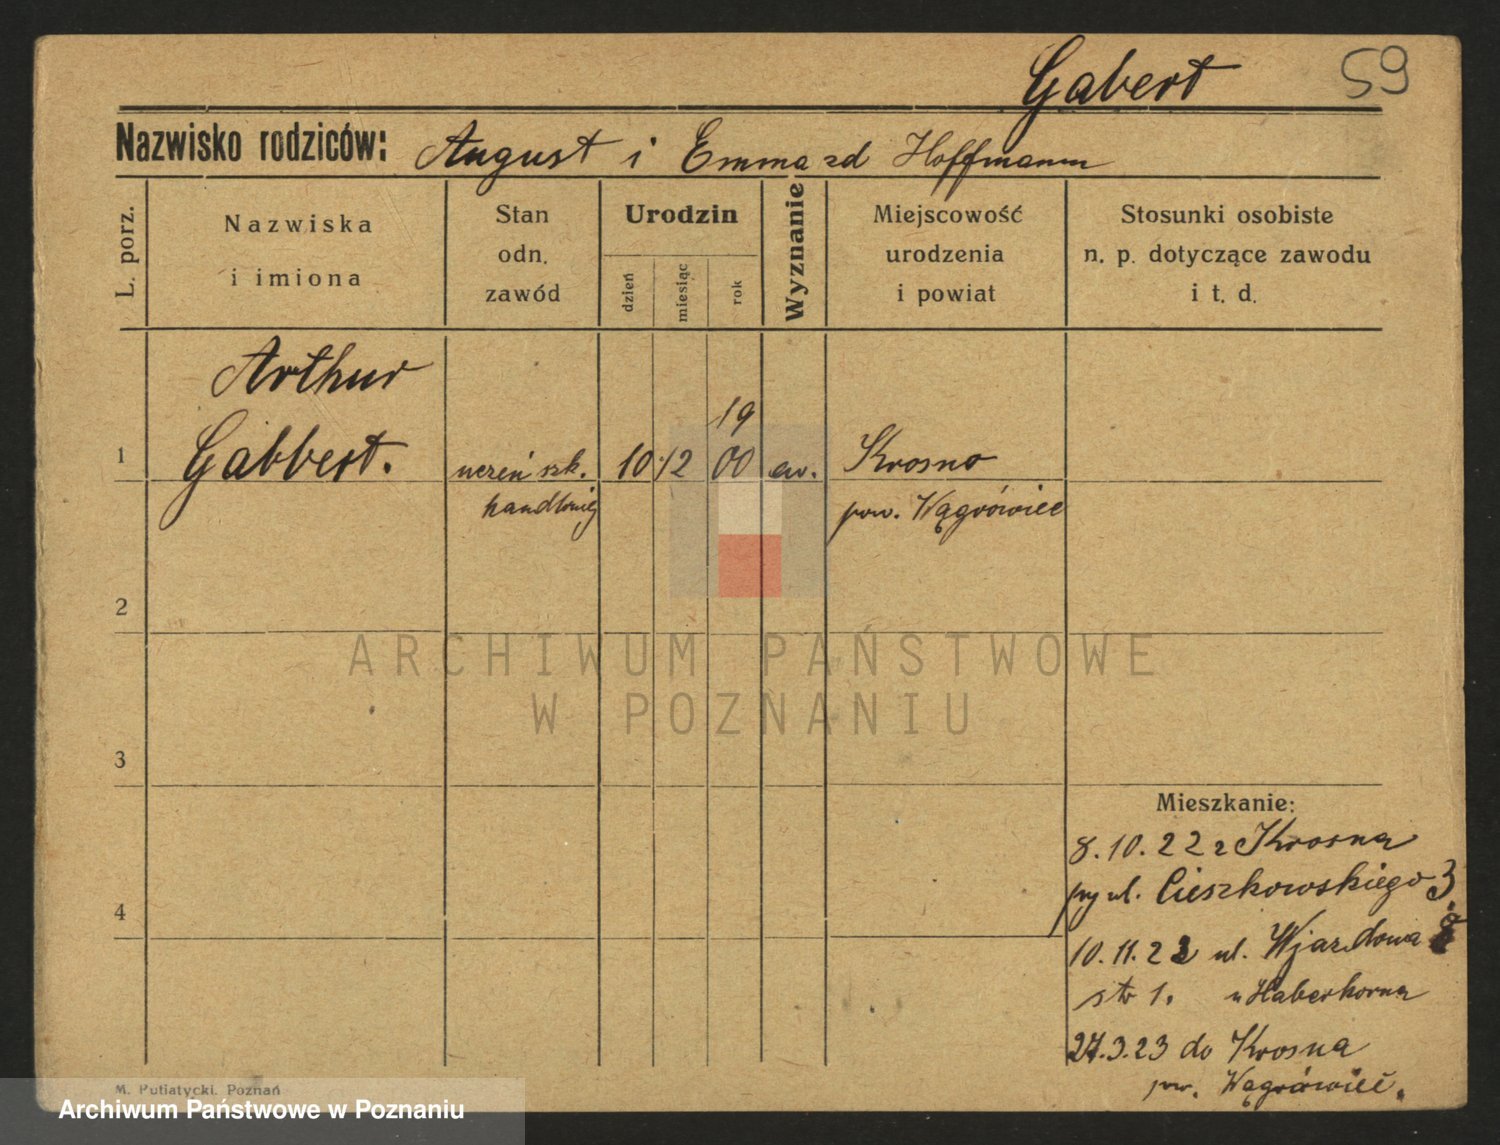 Gabert 59
Nazwisko rodziców: August i Emma zd Hoffmann
L. porz.
Nazwiska
i imiona
Stan
odn.
zawód
Urodzin
dzień
miesiąc
rok
Wyznanie
Miejscowość
urodzenia
i powiat
Stosunki osobiste
n. p. dotyczące zawodu
i t. d.
Arthur
19
1 Gabbert. uczeń szk. 10 12 00 ew. Krosno
handlowej pow. Wągrówiec
2
ARCHIWUM PAŃSTWOWE
W POZNANIU
3
Mieszkanie:
8.10.22 z Krosna
przy ul. Cieszkowskiego 3.
4
10.11.22 ul. Wjazdowa
str 1. u Haberkorna
27.3.23 do Krosna
pow. Wągrówiec.
M. Putiatycki. Poznań
Archiwum Państwowe w Poznaniu